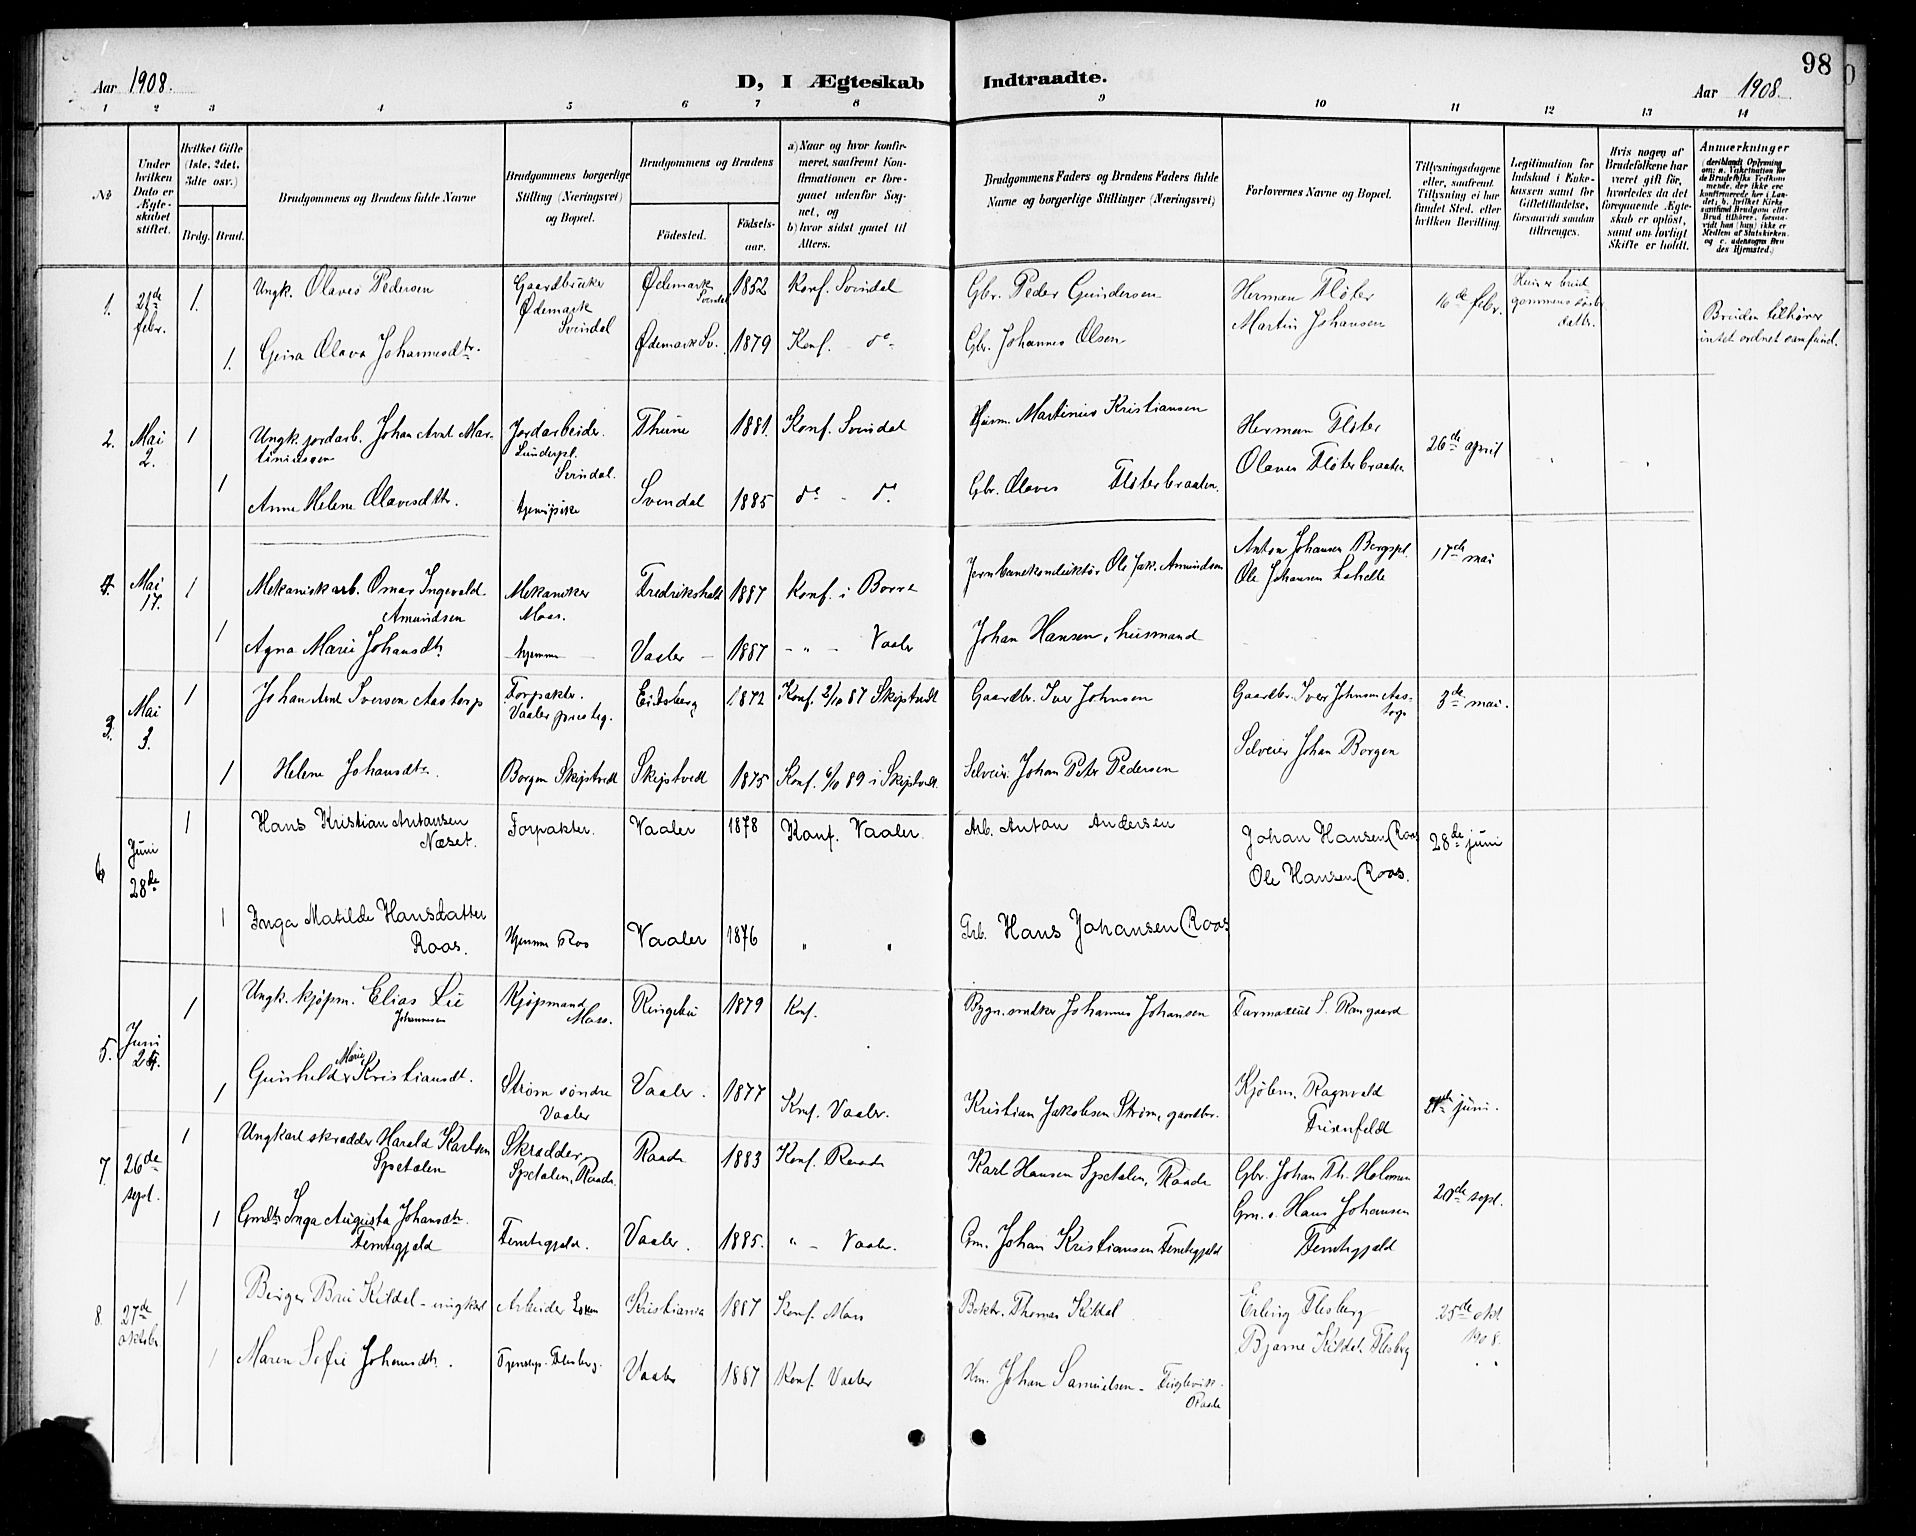 98
Aar 1908.
D, I Ægteskab Indtraadte.
Aar 1908.
1 2 3 4 5 6 7 8 9 10 11 12 13 14
No
Under hvilken Dato er Ægteskabet stiftet.
Hvilket Gifte (1ste, 2det, 3dte osv.)
Brdg. Brud.
Brudgommens og Brudens fulde Navne
Brudgommens borgerlige Stilling (Næringsvei) og Bopæl.
Brudgommens og Brudens
Fødested.
Fødselsaar.
a) Naar og hvor konfirmeret, saafremt Konfirmationen er foregaaet udenfor Sognet, og
b) hvor sidst gaaet til Alters.
Brudgommens Faders og Brudens Faders fulde Navne og borgerlige Stillinger (Næringsvei)
Forlovernes Navne og Bopæl.
Tillysningsdagene eller, saafremt Tillysning ei har fundet Sted, efter hvilken Bevilling.
Legitimation for Indskud i Enkekassen samt for Giftetilladelse, forsaavidt saadan tiltrænges.
Hvis nogen af Brudefolkene har været gift før, hvorledes da det foregaaende Ægteskab er opløst, samt om lovligt Skifte er holdt.
Anmærkninger
1. 21de febr. 1. Ungk. Olaves Pedersen Gaardbruker Ødemark Svindal Ødemark Svindal 1852 Konf. Svindal Gbr. Peder Gundersen Herman Fløter Martin Johansen 16de febr.
Bruden tilhører intet ordnet samfund.
1. Olava Johannesdtr. Ødemark Sv. 1879 Konf. do Gbr. Johannes Olsen
2. Mai 2. 1 Ungk. jordarb. Johan Arnt Martiniussen Jordarbeider. Svindal. Thune 1881. Konf. Svindal Husm. Martinius Kristiansen Herman Fløter Olaves Fløterbraaten 26de april
1 Anne Helene Olavesdttr. Svendal 1885 do - do Gbr. Olaves Fløterbraaten.
4. Mai 17. 1 Mekanisk arb. Omar Ingevald Amundsen Mekaniker Moss. Fredrikshald 1887 Konf. i Borre Jernbanekonduktør Ole Jak. Amundsen Anton Johansen Bergspl. Ole Johansen 17de mai
1 Agna Marie Johansdtr hjemme Vaaler 1887 - " - Vaaler Johan Hansen, husmand
3. Mai 3. 1 Johan Arnt Iversen Aastorp Forpakter. Vaaler presteg. Eidsberg 1872 Konf. 2/10 87 Skiptvedt Gaardbr. Iver Johnsen Gaardbr. Iver Johnsen Aastorp Selveier Johan Borgen 3de mai.
1 Helene Johansdtr. Borgen Skiptvedt Skiptvedt 1875 Konf. 6/10 89 i Skiptvedt. Selveier Johan Peter Pedersen
6 Juni 28de 1 Hans Kristian Antonsen Næset. Forpakter. Vaaler 1878 Konf. Vaaler. Arb. Anton Andersen Johan Hansen (Roos Ole Hansen (Roos. 28de juni
1 Inga Matilde Hansdatter Roos. Hjemme Roos Vaaler 1876 " " Hans Johansen (Roos
5. Juni 1 Ungk. kjøpm. Elias Lie Johannesen Kjøpmand Moss. Ringebu 1879 Knf. Johannes Johansen Farmaceut S. Rangaard
1 Gunhild Marie Kristiansdt. Strøm søndre Vaaler Vaaler. 1877 Konf. Vaaler. Kristian Jakobsen Strøm, gaardbr. Kjøbm. Ragnvald juni.
7. 26de sept. 1 Ungkarl skradder Harald Karlsen Spetalen Skradder, Spetalen, Raade. Raade 1883 Konf. Raade Karl Hansen Spetalen, Raade Gbr. Johan Th. Holmsen Gm. s. Hans Johansen Femtegjeld 20de sept.
1 Gmdtr Inga Augusta Johansdtr. Femtegjeld Femtegjeld. Vaaler. 1885. " - Vaaler. Gm. Johan Kristiansen Femtegjeld
8. 27de oktober 1 Birger Bru Kildal - ungkarl Arbeider Kristiania 1887 Konf. Moss Thomas Kildal Erling Flesberg Bjarne Kildal Flesberg 25de okt 1908.
1 Maren Sofie Johansdtr. Flesberg. Vaaler 1887 Konf. Vaaler Hm. Johan Samuelsen - Fuglevik - Raade